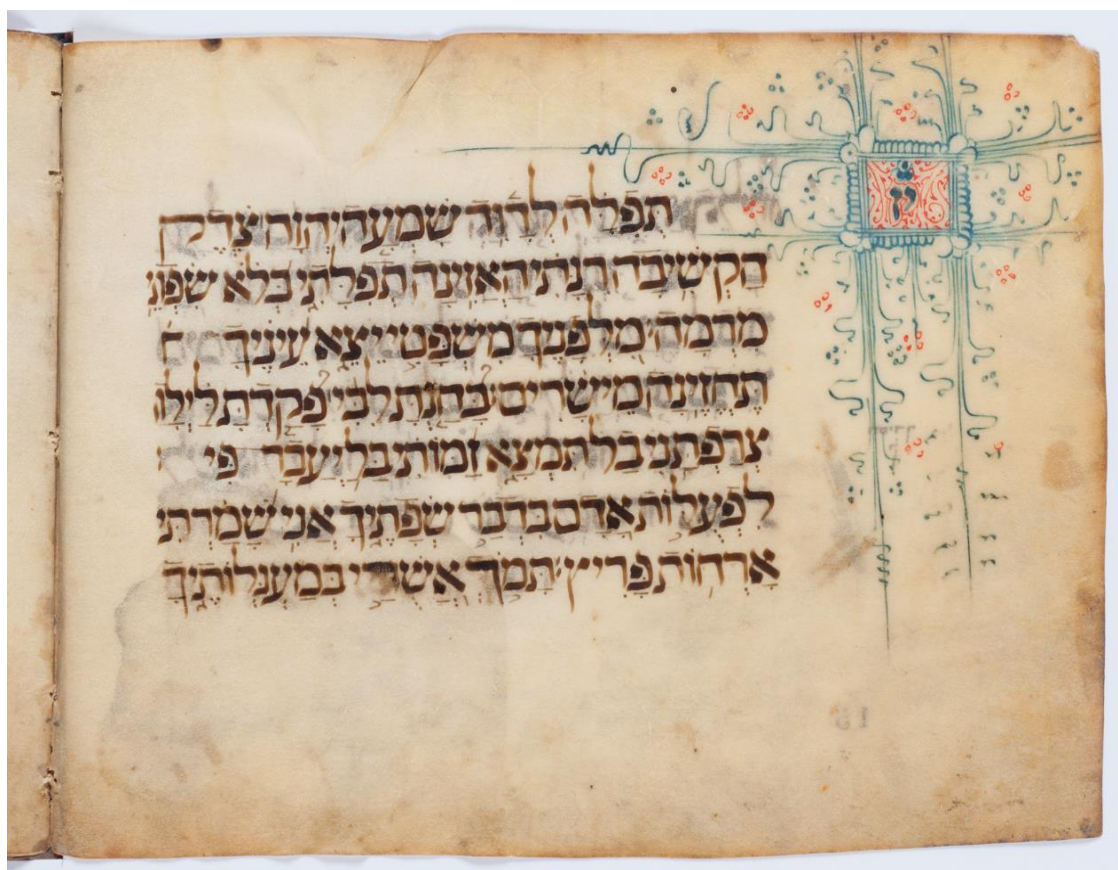 יז
תְפִלָּה לְדָוִד שִׁמְעָה יְהוָה צֶדֶק
הַקְשִׁיבָה רִנָּתִי הַאֲזִינָה תְפִלָּתִי בְּלֹא שִׂפְתֵי
מִרְמָה מִלְּפָנֶיךָ מִשְׁפָּטִי יֵצֵא עֵינֶיךָ
תֶּחֱזֶינָה מֵישָׁרִים בָּחַנְתָּ לִבִּי פָּקַדְתָּ לַּיְלָה
צְרַפְתַּנִי בַל תִּמְצָא זַמּוֹתִי בַּל יַעֲבָר פִּי
לִפְעֻלּוֹת אָדָם בִּדְבַר שְׂפָתֶיךָ אֲנִי שָׁמַרְתִּי
אָרְחוֹת פָּרִיץ תָּמֹךְ אֲשֻׁרַי בְּמַעְגְּלוֹתֶיךָ